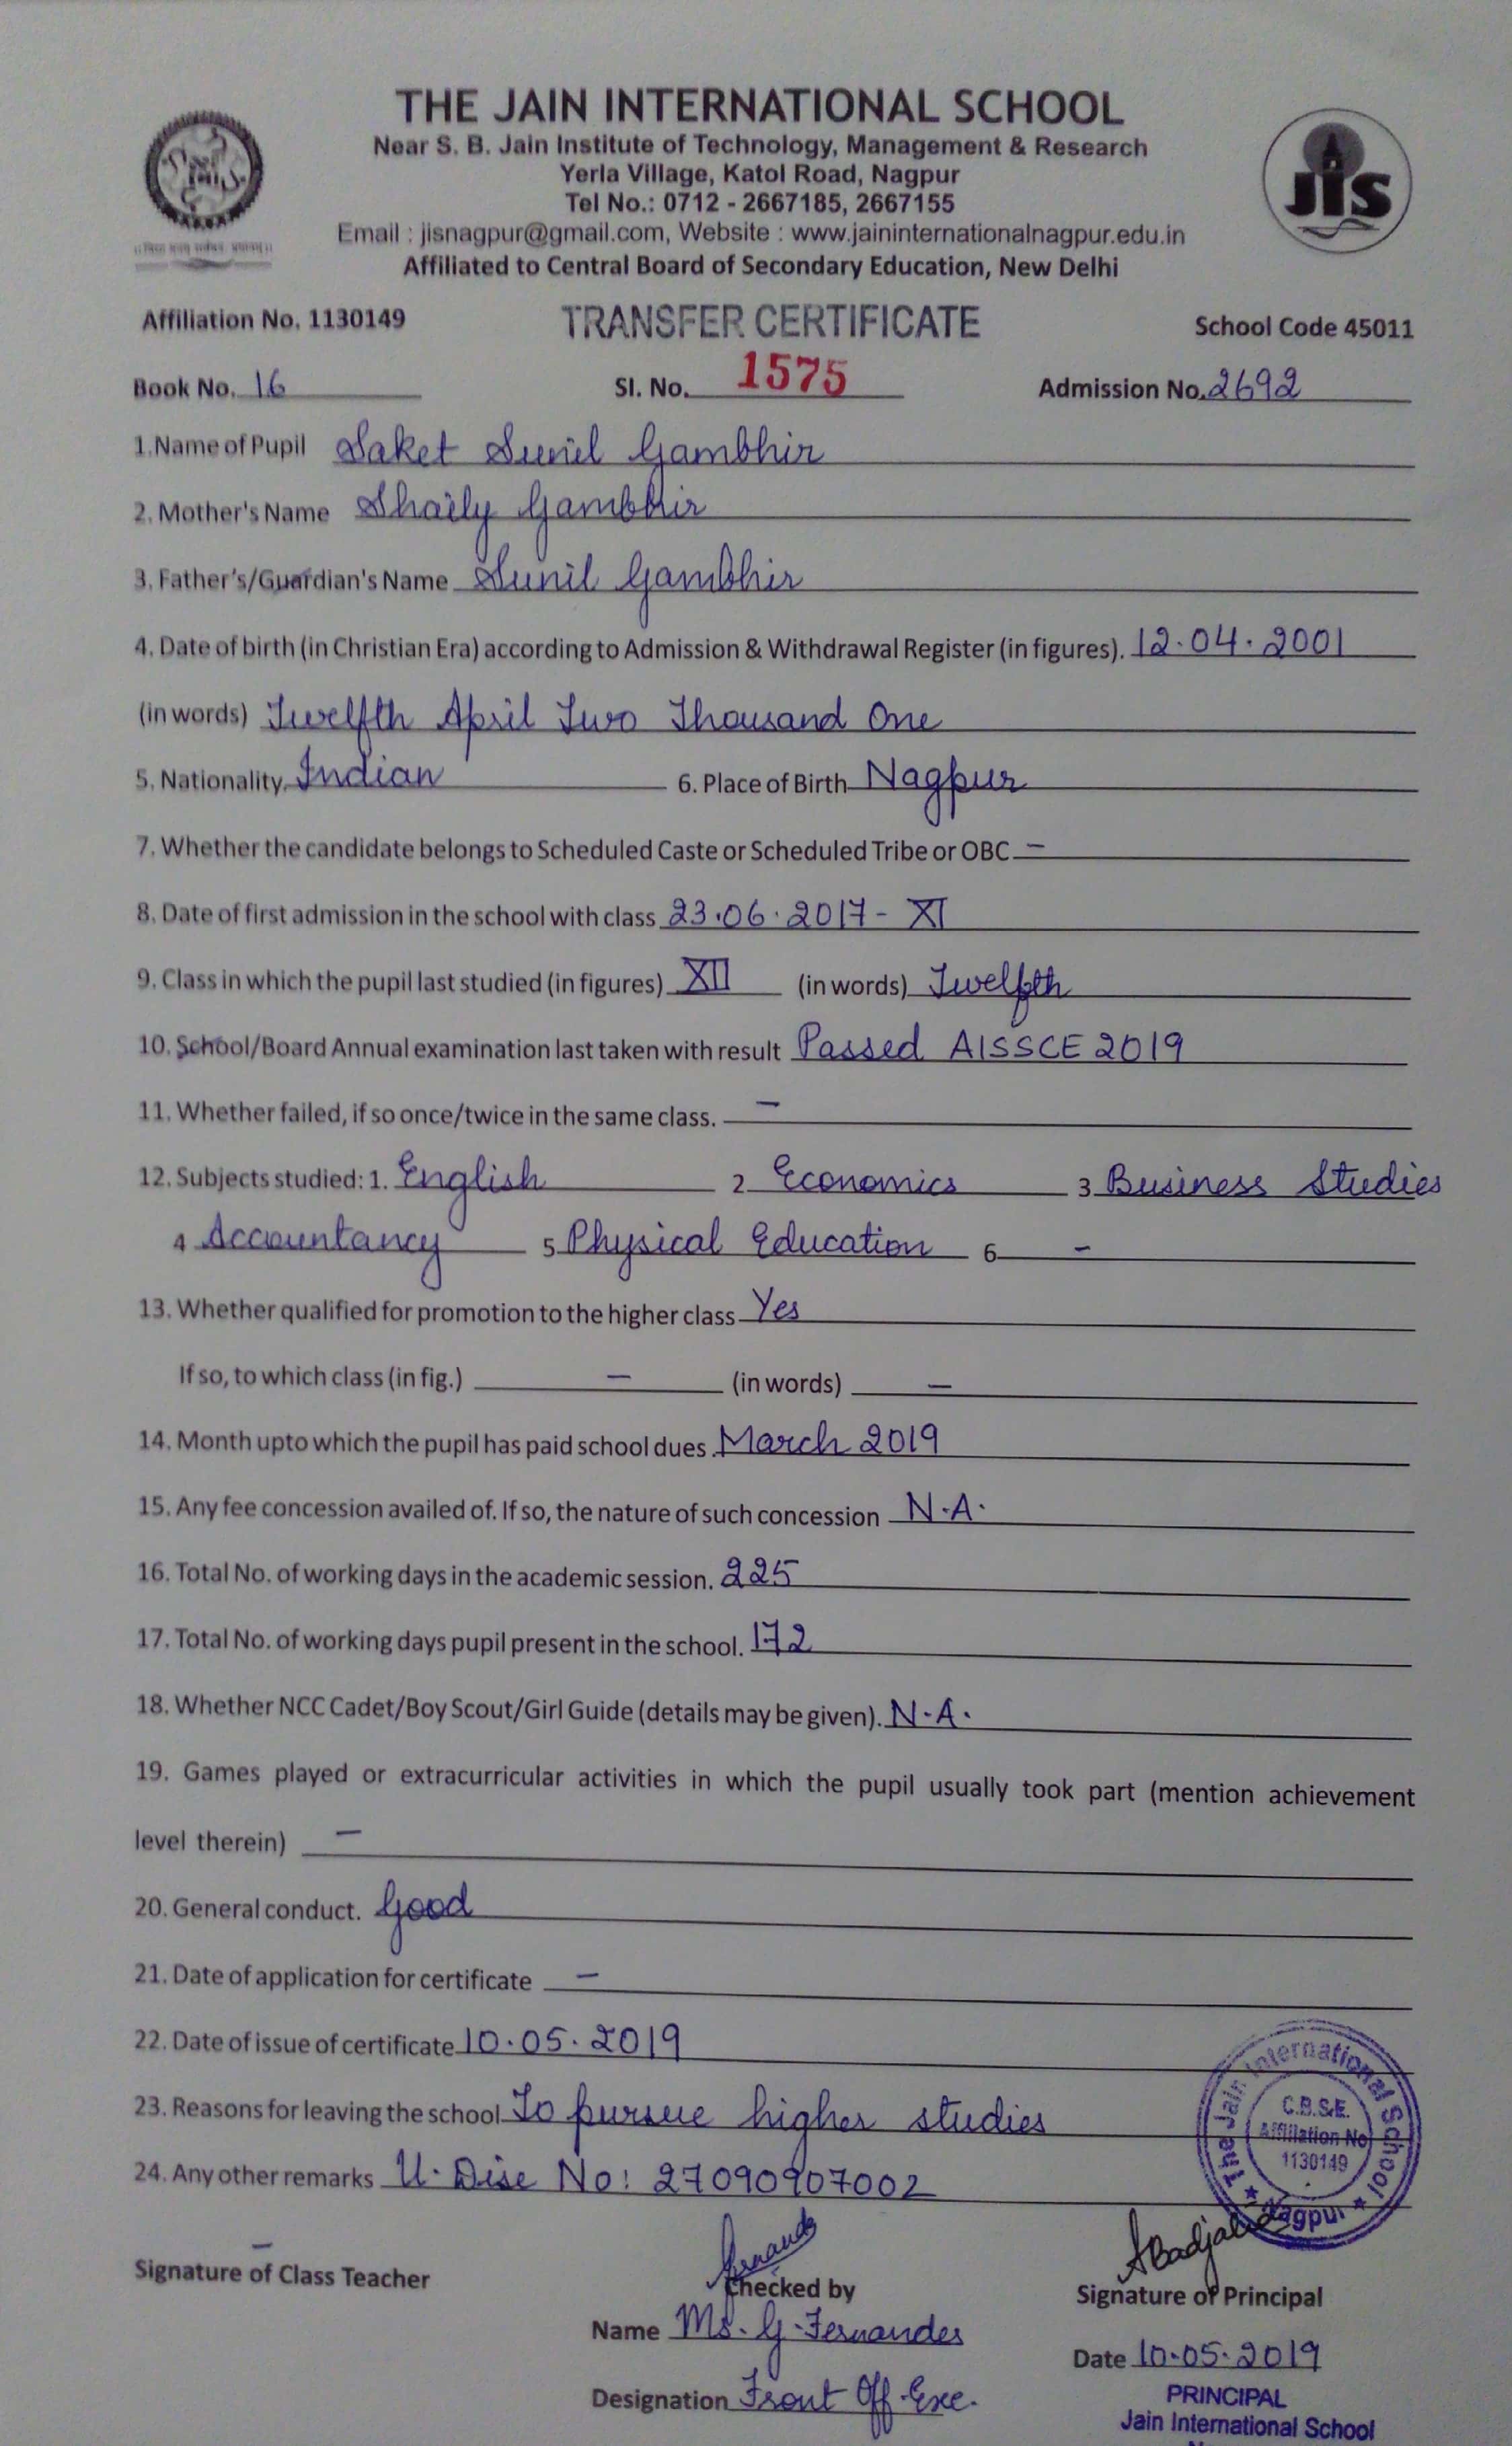 THE JAIN INTERNATIONAL SCHOOL
Near S. B. Jain Institute of Technology, Management & Research
Yerla Village, Katol Road, Nagpur
Tel No.: 0712 - 2667185, 2667155
Email : jisnagpur@gmail.com, Website : www.jaininternationalnagpur.edu.in
Affiliated to Central Board of Secondary Education, New Delhi
JIS
Affiliation No. 1130149 TRANSFER CERTIFICATE School Code 45011
Book No. 16 Sl. No. 1575 Admission No. 2692
1.Name of Pupil Saket Sunil Gambhir
2. Mother's Name Shaily Gambhir
3. Father's/Guardian's Name Sunil Gambhir
4. Date of birth (in Christian Era) according to Admission & Withdrawal Register (in figures). 12.04.2001
(in words) Twelfth April Two Thousand One
5. Nationality Indian 6. Place of Birth Nagpur
7. Whether the candidate belongs to Scheduled Caste or Scheduled Tribe or OBC –
8. Date of first admission in the school with class 23.06.2017 - XI
9. Class in which the pupil last studied (in figures) XII (in words) Twelfth
10. School/Board Annual examination last taken with result Passed AISSCE 2019
11. Whether failed, if so once/twice in the same class. –
12. Subjects studied: 1. English 2 Economics 3 Business Studies
4 Accountancy 5 Physical Education 6 –
13. Whether qualified for promotion to the higher class Yes
If so, to which class (in fig.) – (in words) –
14. Month upto which the pupil has paid school dues. March 2019
15. Any fee concession availed of. If so, the nature of such concession N.A.
16. Total No. of working days in the academic session. 225
17. Total No. of working days pupil present in the school. 172
18. Whether NCC Cadet/Boy Scout/Girl Guide (details may be given). N.A.
19. Games played or extracurricular activities in which the pupil usually took part (mention achievement
level therein) –
20. General conduct. Good
21. Date of application for certificate –
22. Date of issue of certificate 10.05.2019
23. Reasons for leaving the school To pursue higher studies
24. Any other remarks U. Dise No: 27090907002
The Jain International School
C.B.S.E.
Affiliation No
1130149
★ Nagpur ★
–
Signature of Class Teacher
Checked by
Signature of Principal
Name Ms. G. Fernandes
Date 10.05.2019
Designation Front Off. Exe.
PRINCIPAL
Jain International School